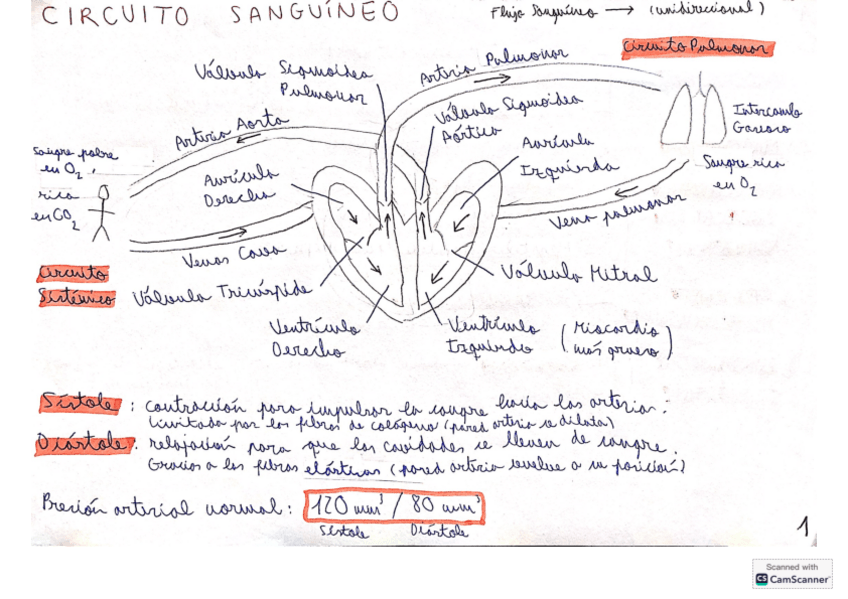 CIRCUITO SANGUÍNEO
Flujo Sanguíneo → (unidireccional)
Circuito Pulmonar
Válvula Sigmoidea
Pulmonar
Arteria Pulmonar
Válvula Sigmoidea
Aórtica
Arteria Aorta
Intercambio
Gaseoso
Sangre pobre
en O₂,
rica
en CO₂
Aurícula
Derecha
Aurícula
Izquierda
Sangre rica
en O₂
Vena pulmonar
Venas Cava
Circuito
Sistémico
Válvula Tricúspide
Válvula Mitral
Ventrículo
Derecho
Ventrículo
Izquierdo
(Miocardio
más grueso)
Sístole: contracción para impulsar la sangre hacia las arterias.
Limitada por las fibras de colágeno (pared arteria se dilata)
Diástole: relajación para que las cavidades se llenen de sangre.
Gracias a las fibras elásticas (pared arteria vuelve a su posición)
Presión arterial normal: 120 mm³ / 80 mm³
Sístole Diástole
1
Scanned with
CS CamScanner